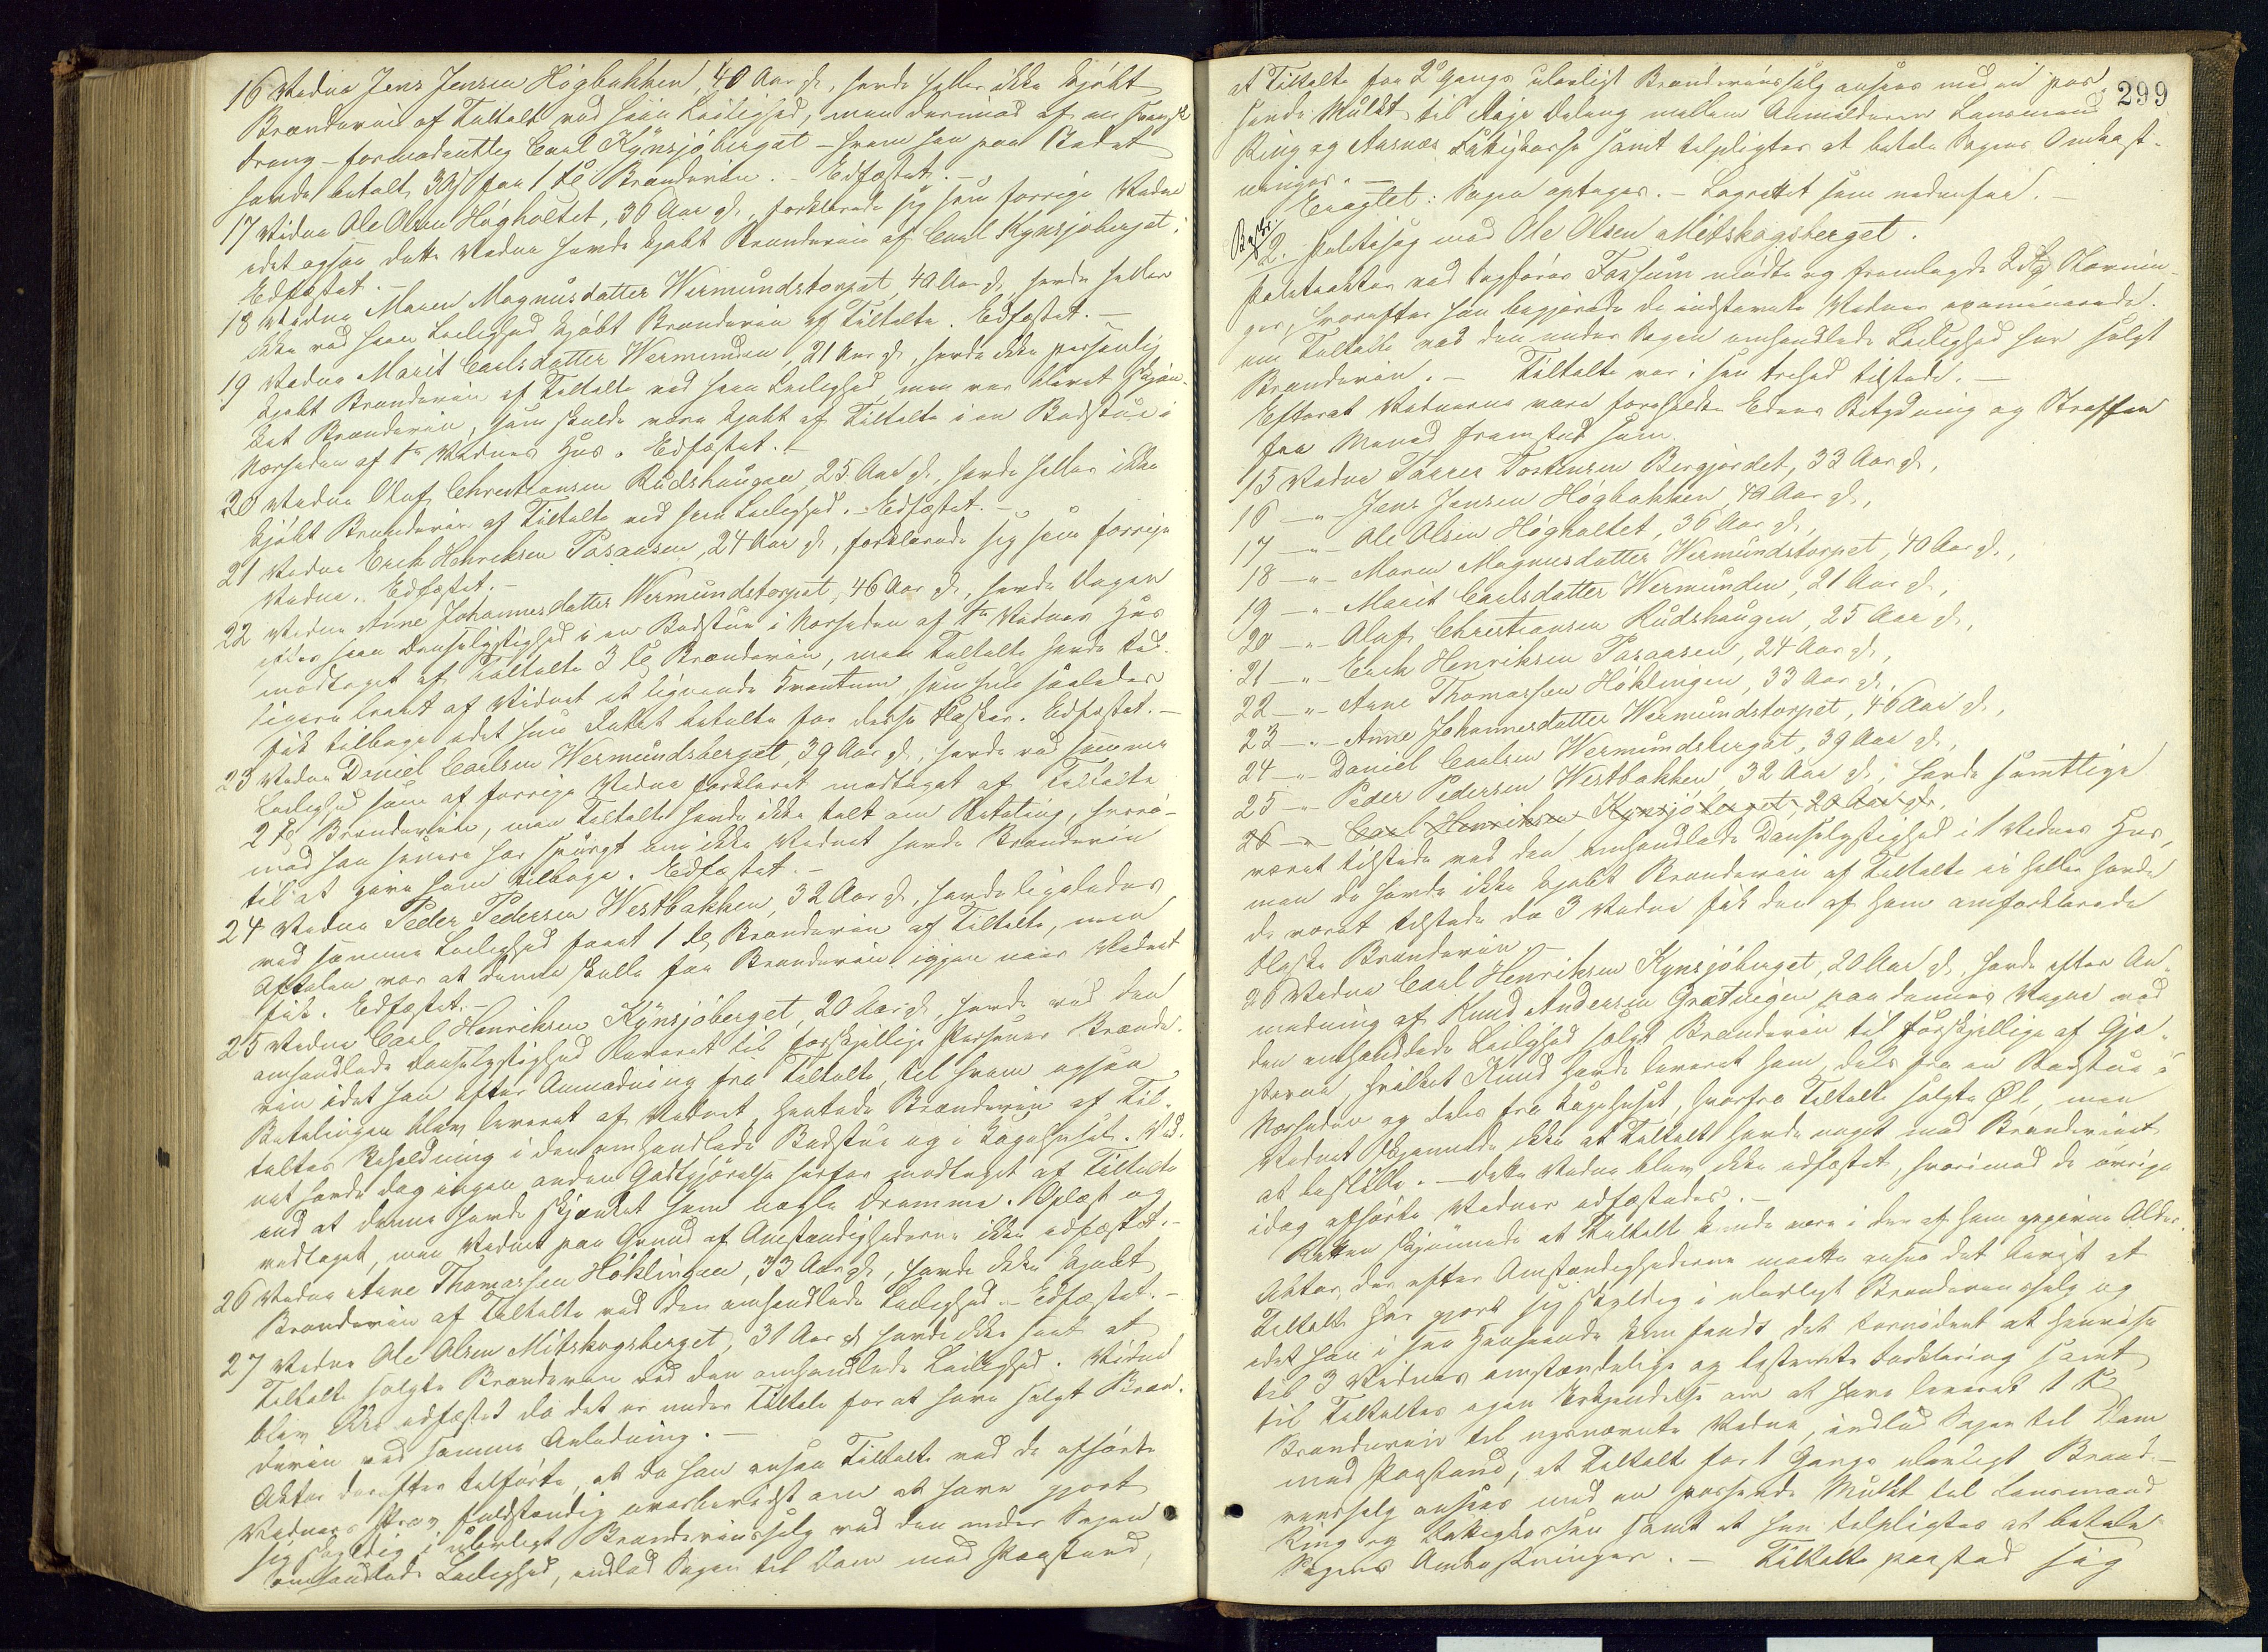 16 Vidne Jens Jensen Högbakken, 40 Aar gl., havde heller ikke kjøbt
Brændeviin af Tiltalte ved heen Leilighed, men derimod af en svensk
Dreng – formodentlig Carl Kÿnsjöberget – hvem han paa Stedet
havde betalt 30 s for 1 Fl. Brændeviin. – Edfæstet. –
17 Vidne Ole Olsen Högholtet, 36 Aar gl., forklarede sig som forrige Vidne
idet ogsaa dette Vidne havde kjøbt Brændeviin af Carl Kynsjøberget;
Edfæstet. –
18 Vidne Maren Magnusdatter Wermundstorpet, 40 Aar gl., havde heller
ikke ved heen Leilighed kjøbt Brændeviin af Tiltalte. Edfæstet. –
19 Vidne Marit Carlsdatter Wermunden, 21 Aar gl., havde ikke personlig
kjøbt Brændeviin af Tiltalte ved heen Leilighed, men var blevet skjæn-
ket Brændeviin, som skulde være kjøbt af Tiltalte i en Badstue i
Nærheden af 1ste Vidnes Hus. Edfæstet. –
20 Vidne Oluf Christiansen Rudshaugen, 25 Aar gl., havde heller ikke
kjøbt Brændeviin af Tiltalte ved heen Leilighed. – Edfæstet. –
21 Vidne Erik Henriksen Pasaasen, 24 Aar gl., forklarede sig som forrige
Vidne. Edfæstet. –
22 Vidne Anne Johannesdatter Wermundstorpet, 46 Aar gl., havde Dagen
efter heen Dandselystighed i en Badstue i Nærheden af 1ste Vidnes Hus
modtaget af Tiltalte 3 Fl. Brændeviin, men Tiltalte havde tid-
ligere laant af Vidnet et lignende Kvantum, som hun saaledes
fik tilbage idet hun Intet betalte for disse Flasker. Edfæstet. –
23 Vidne Daniel Carlsen Wermundsberget, 39 Aar gl., havde ved samme
Leilighed som af forrige Vidne forklaret modtaget af Tiltalte
2 Fl. Brændeviin, men Tiltalte havde ikke talt om Betaling, hvori-
mod han senere har spurgt om ikke Vidnet havde Brændeviin
til at give ham tilbage. Edfæstet. –
24 Vidne Peder Pedersen Westbakken, 32 Aar gl., havde ligeledes
ved samme Leilighed faaet 1 Fl. Brændeviin af Tiltalte, men
Aftalen var at denne skulle faa Brændeviin igjen naar Vidnet
fik. Edfæstet. –
25 Vidne Carl Henriksen Kÿnsjöberget, 20 Aar gl., havde ved den
omhandlede Dandselystighed leveret til forskjellige Personer Brænde-
viin idet han efter Anmodning fra Tiltalte, til hvem ogsaa
Betalingen blev leveret af Vidnet, hentede Brændeviin af Til-
taltes Beholdning i den omhandlede Badstue og i Kagehuset. Vid-
net havde dog ingen anden Godtgjørelse herfor modtaget af Tiltalte
end at denne havde skjænket ham nogle Dramme. Oplæst og
vedtaget, men Vidnet paa Grund af Omstændighederne ikke edfæstet. –
26 Vidne Arne Thomassen Höklingen, 33 Aar gl., havde ikke kjøbt
Brændeviin af Tiltalte ved den omhandlede Leilighed. – Edfæstet. –
27 Vidne Ole Olsen Mitskogsberget, 31 Aar gl. havde ikke seet at
Tiltalte solgte Brændeviin ved den omhandlede Leilighed. Vidnet
blev ikke edfæstet da det er under Tiltale for at have solgt Bræn-
deviin ved samme Anledning. –
Aktor derefter tilførte, at da han ansaa Tiltalte ved de afhørte
Vidners Prov fuldstændig overbeviist om at have gjort
sig skyldig i ulovligt Brændeviinssalg ved den under Sagen
omhandlede Leilighed, indlod Sagen til Dom med Paastand,
299
at Tiltalte for 2den Gangs ulovligt Brændeviinssalg ansees med en pas-
sende Mulkt til lige Deling mellem Anmelderen Lensmand
Ring og Aasnes Fattigkasse samt tilpligtes at betale Sagens Omkost-
ninger. –
Eragtet: Sagen optages. – Lagrettet som nedenfor. –
2. Politisag mod Ole Olsen Mitskogsberget.
Politiaktor ved Sagfører Fossum mødte og fremlagde 2 Stævnin-
ger, hvorefter han begjærede de indstævnte Vidner examinerede
om Tiltalte ved den under Sagen omhandlede Leilighed har solgt
Brændeviin. – Tiltalte var i sin Frihed tilstede. –
Efterat Vidnerne vare foreholdte Edens Betydning og Straffen
for Meened fremstod som
15 Vidne Taarer Tostensen Bergjordet, 33 Aar gl.,
16 –"– Jens Jensen Högbakken, 40 Aar gl.,
17 –"– Ole Olsen Högholtet, 36 Aar gl.,
18 –"– Maren Magnusdatter Wermundstorpet, 40 Aar gl.,
19 –"– Marit Carlsdatter Wermunden, 21 Aar gl.,
20 –"– Oluf Christiansen Rudshaugen, 25 Aar gl.,
21 –"– Erik Henriksen Pasaasen, 24 Aar gl.,
22 –"– Arne Thomassen Höklingen, 33 Aar gl.,
23 –"– Anne Johannesdatter Wermundstorpet, 46 Aar gl.,
24 –"– Daniel Carlsen Wermundsberget, 39 Aar gl.,
25 –"– Peder Pedersen Westbakken, 32 Aar gl.; havde samtlige
26 –"– Carl Henriksen Kynsjöberget, 20 Aar gl.
været tilstede ved den omhandlede Dandselystighed i 1 Vidnes Hus,
men de havde ikke kjøbt Brændeviin af Tiltalte ei heller havde
de været tilstede da 3 Vidne fik den af ham omforklarede
Flaske Brændeviin. –
26 Vidne Carl Henriksen Kynsjöberget, 20 Aar gl., havde efter An-
modning af Knud Andersen Grætnigen paa dennes Vegne ved
den omhandlede Leilighed solgt Brændeviin til forskjellige af Gjæ-
sterne, hvilket Knud havde leveret ham, dels fra en Badstue i
Nærheden og dels fra Kagehuset, hvorfra Tiltalte solgte Øl, men
Vidnet skjønnede ikke at Tiltalte havde noget med Brændeviinet
at bestille. – Dette Vidne blev ikke edfæstet, hvorimod de øvrige
idag afhørte Vidner edfæstedes. –
Retten skjønnede at Tiltalte kunde være i den af ham opgivne Alder.
Aktor, der efter Omstændighederne maatte ansee det beviist at
Tiltalte har gjort sig skyldig i ulovligt Brændeviinssalg og
idet han i saa Henseende kun fandt det fornødent at henvise
til 3 Vidnes omstændelige og bestemte Forklaring samt
til Tiltaltes egen Erkjendelse om at have leveret 1 Fl.
Brændeviin til nysnævnte Vidne, indlod Sagen til Dom
med Paastand, at Tiltalte for 1 Gangs ulovligt Brænde-
viinssalg ansees med en passende Mulkt til Lensmand
Ring og Fattigkassen samt at han tilpligtes at betale
Sagens Omkostninger. – Tiltalte paastod sig